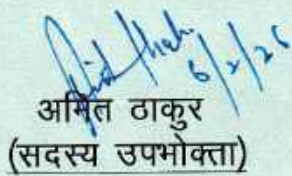 6/2/26
अमित ठाकुर
(सदस्य उपभोक्ता)